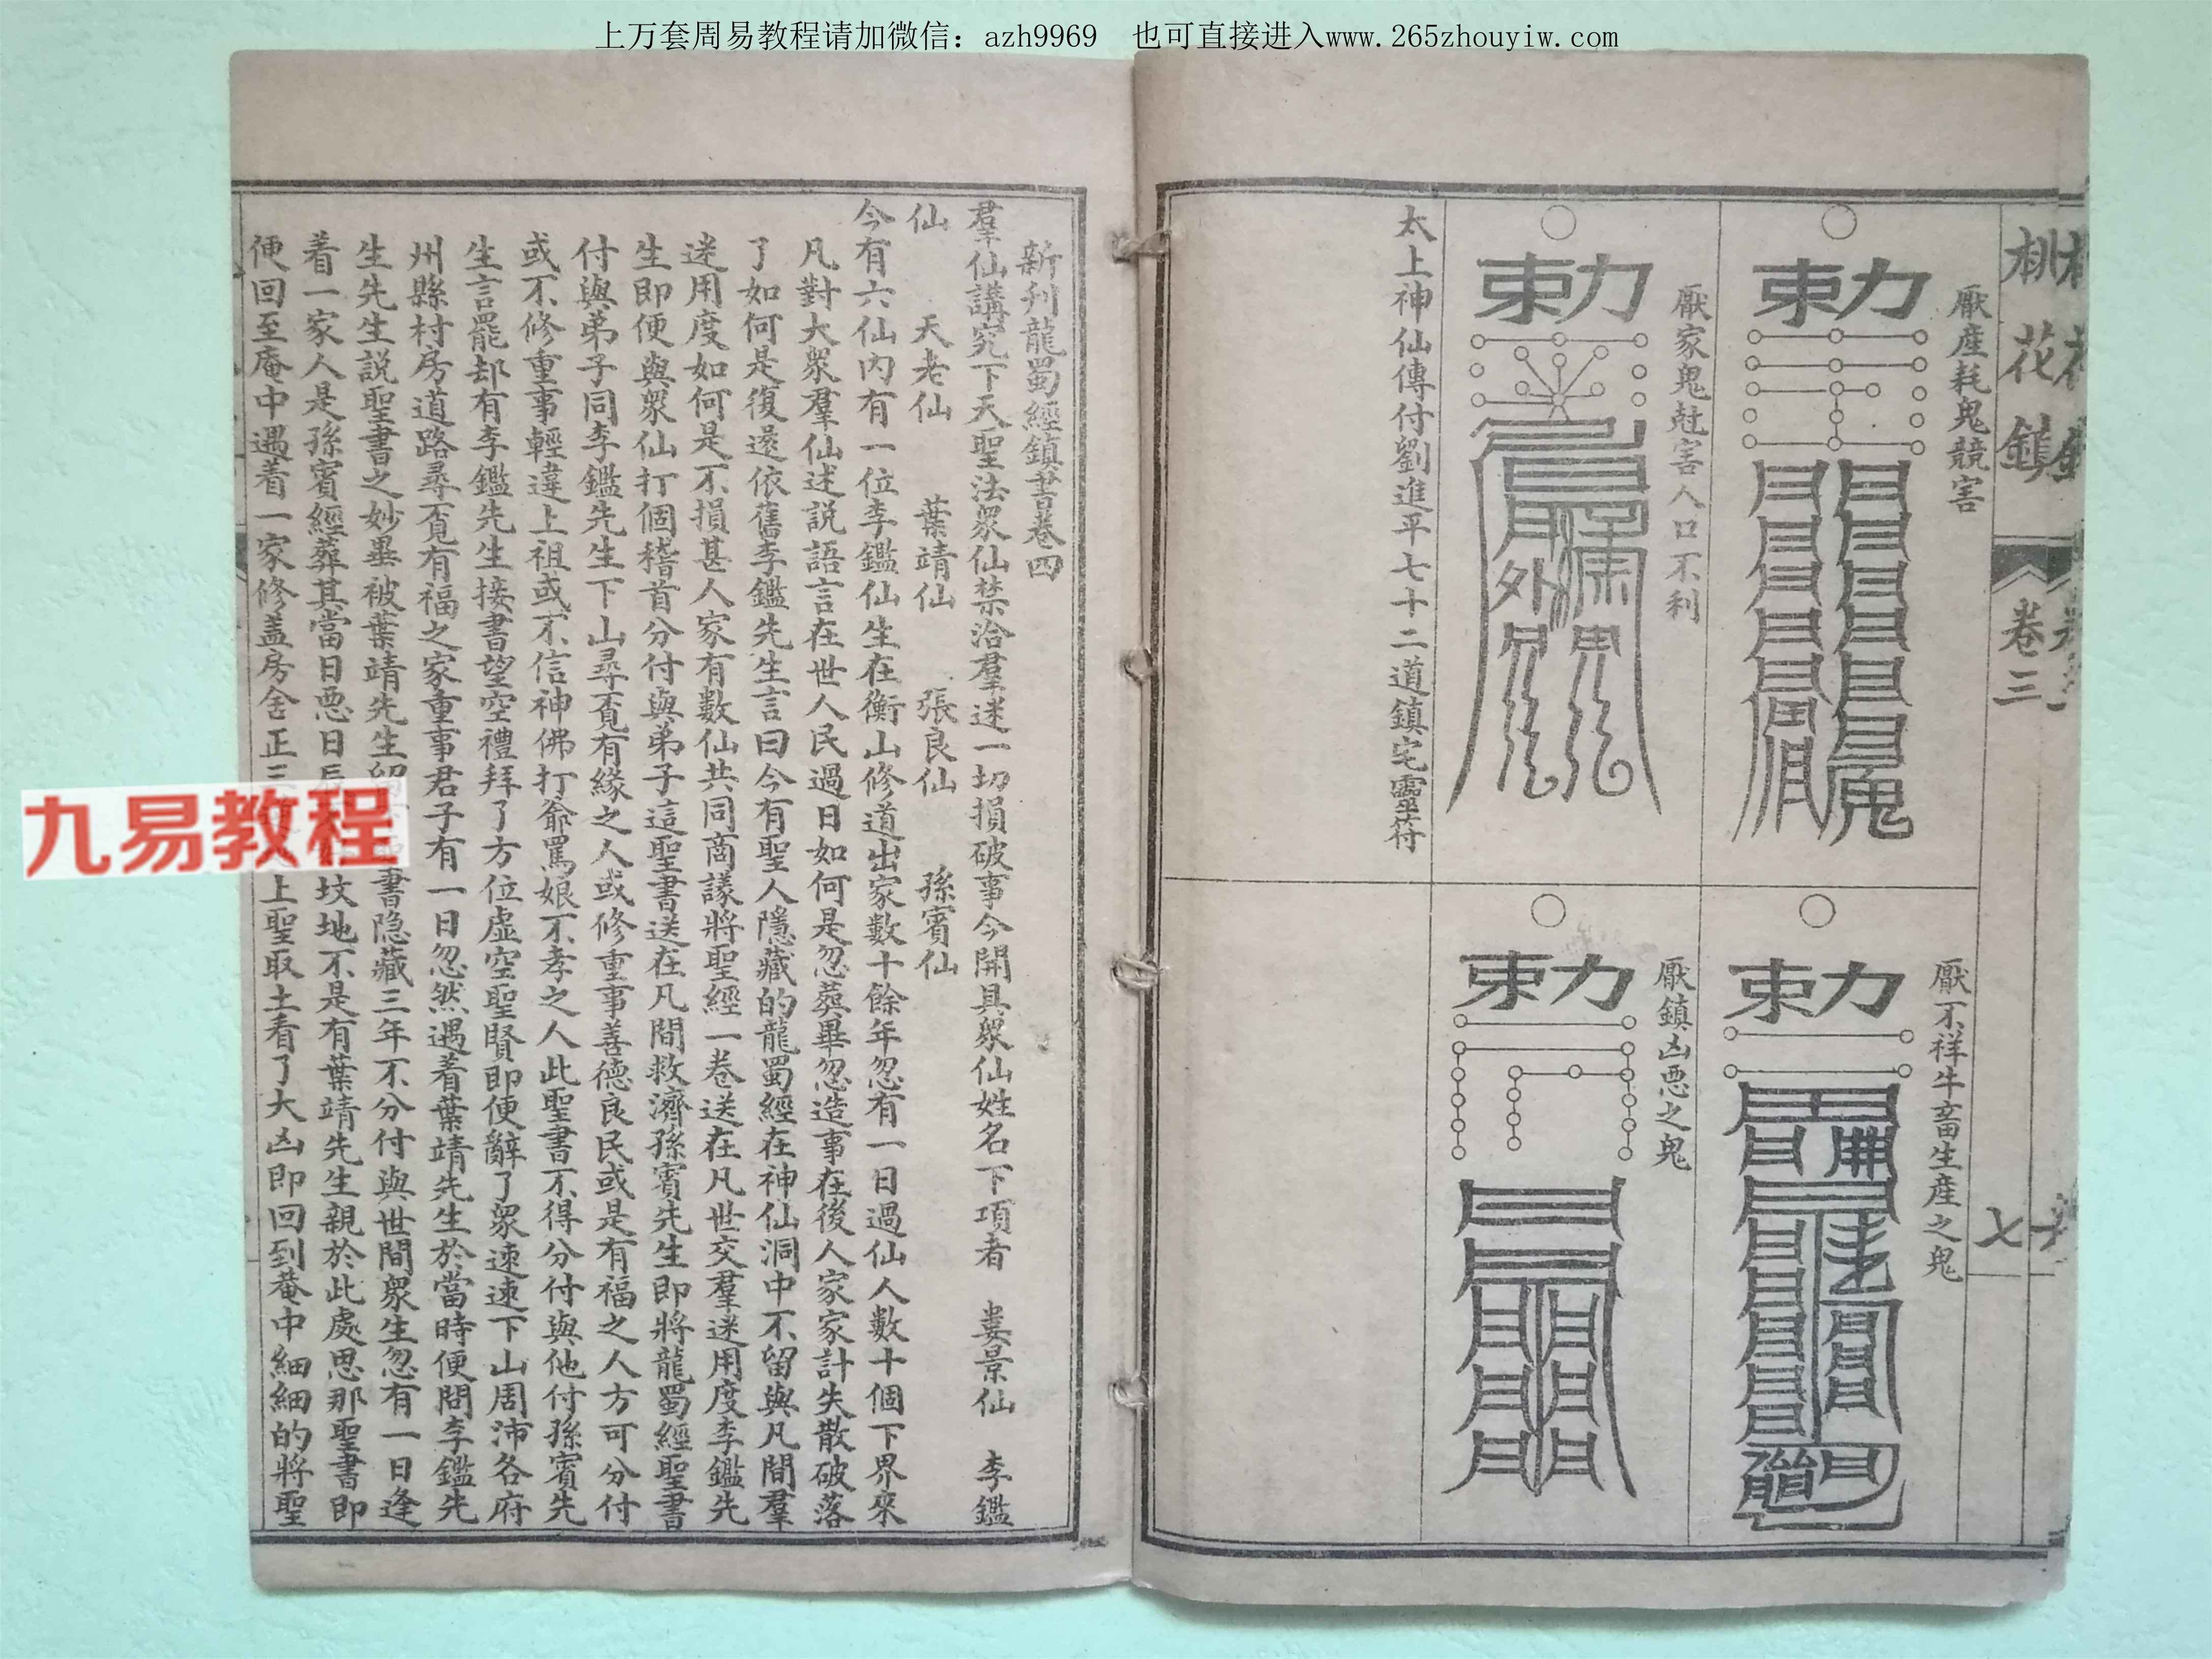 上万套周易教程请加微信：azh9969 也可直接进入www.265zhouyiw.com
桃花鎮 卷三
厭産耗鬼競害
勅
厭家鬼尅害人口不利
勅
厭不祥牛畜生産之鬼
勅
厭鎮凶悪之鬼
勅
太上神仙傳付劉進平七十二道鎮宅靈符
新刊龍蜀經鎮書卷四
羣仙講究下天聖法衆仙禁治羣迷一切損破事今開具衆仙姓名下項者 婁景仙 李鑑
仙 天老仙 葉靖仙 張良仙 孫賓仙
今有六仙内有一位李鑑仙生在衡山修道出家數十餘年忽有一日過仙人數十個下界來
凡對大衆羣仙述説語言在世人民過日如何是忽葬畢忽造事在後人家家計失散破落
了如何是復還依舊李鑑先生言曰今有聖人隱藏的龍蜀經在神仙洞中不留與凡間羣
迷用度如何是不損甚人家有數仙共同商議將聖經一卷送在凡世交羣迷用度李鑑先
生即便與衆仙打個稽首分付與弟子這聖書送在凡間救濟孫賓先生即將龍蜀經聖書
付與弟子同李鑑先生下山尋覔有緣之人或修重事善德良民或是有福之人方可分付
或不修重事輕違上祖或不信神佛打爺罵娘不孝之人此聖書不得分付與他付孫賓先
生言罷却有李鑑先生接書望空禮拜了方位虚空聖賢即便辭了衆速速下山周沛各府
州縣村房道路尋覔有福之家重事君子有一日忽然遇着葉靖先生於當時便問李鑑先
生先生説聖書之妙畢被葉靖先生留書隐藏三年不分付與世間衆生忽有一日逢
着一家人是孫賓經葬其當日悪日坟地不是有葉靖先生親於此處思那聖書即
便回至庵中遇着一家修盖房舍正三上聖取土看了大凶即回到菴中細細的將聖
九易教程